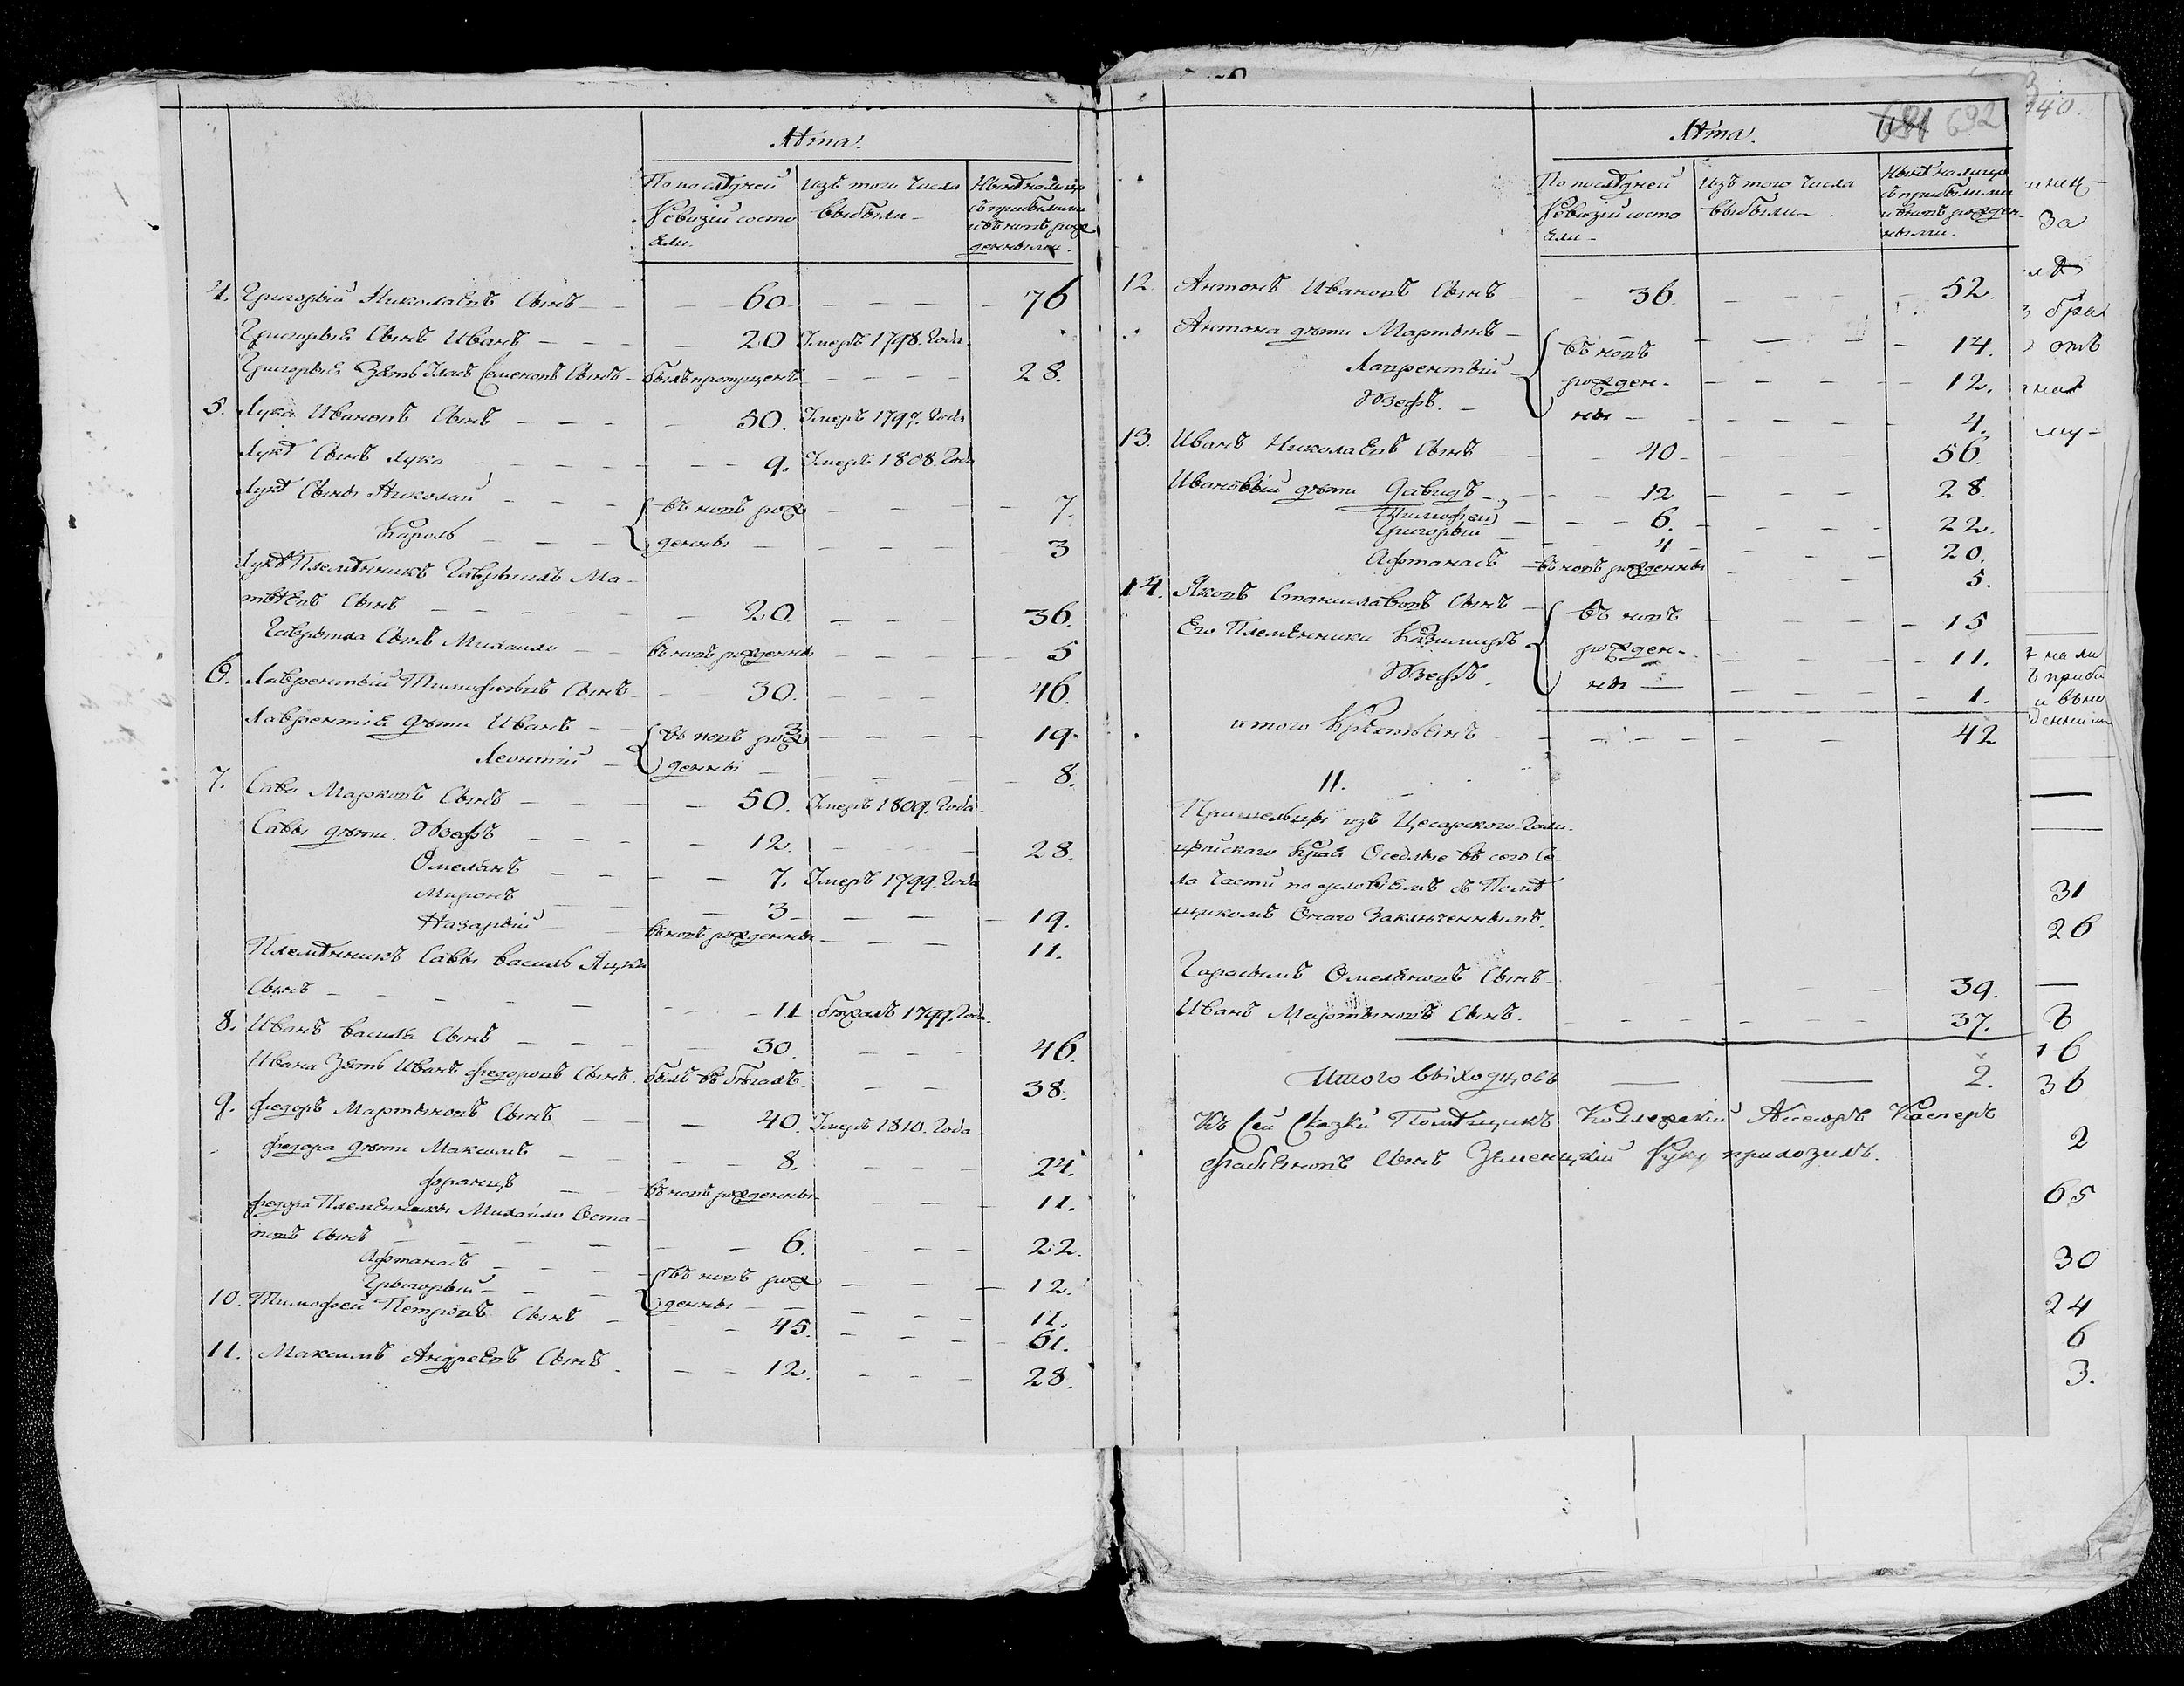 Лѣта.
По последней Ревизіи состояли. Изъ того Числа Выбыли Нынѣ налицо съ прибылыми и въ новъ рожденными.
4. Григорій Николаевъ Сынъ 60 76
Григорыя Сынъ Иванъ 20 Умеръ 1798. Года.
Григорыя Зять Сынъ Семеновъ былъ пропущенъ 28.
5. Лука Ивановъ Сынъ 50. Умеръ 1797. Года
Лукѣ Сынъ Лука 9. Умеръ 1808. Года
Лукѣ Сыны Николай въ новъ рож 7.
Кароль денны 3
Лукѣ Племѣнникъ Гаврыилъ Ма-
твѣевъ Сынъ 20. 36.
Гаврыила Сынъ Михайло въ новъ рожденны 5
6. Лаврентый Тимофеевъ Сынъ 30. 46.
Лаврентія дѣти Иванъ въ новъ рож 19.
Леонтій денны 8.
7. Сава Марковъ Сынъ 50. Умеръ 1809. Года.
Савы дѣти Юзефъ 12. 28.
Омелянъ 7. Умеръ 1799. Года
Миронъ 3 19.
Назарый въ новъ рожденны 11.
Племѣнникъ Савы Василь Яцка
Сынъ 11 бѣжалъ 1799. Года.
8. Иванъ Василя Сынъ 30. 46.
Ивана Зять Иванъ Федоровъ Сынъ. былъ въ бѣгахъ. 38.
9. Федоръ Мартыновъ Сынъ 40. Умеръ 1810. Года
Федора дѣти Максимъ 8. 24.
Францъ въ новъ рожденны 11.
Федора Племянники Михайло Оста-
повъ Сынъ 6. 22.
Афтанасъ въ новъ рож 12.
Грыгорый денны 11.
10. Тимофей Петровъ Сынъ 45. 61.
11. Максимъ Андреевъ Сынъ. 12. 28.
681 692
Лѣта.
По последней Ревизіи состояли Изъ того Числа выбыли Нынѣ налицо съ прибылыми и въ новъ рожденными.
12. Антонъ Ивановъ Сынъ 36. 52.
Антона дѣти Мартынъ въ новъ 14.
Лаврентый рожден- 12.
Юзефъ. ны 4.
13. Иванъ Николаевъ Сынъ 40. 56.
Ивановый дѣти Давидъ 12 28.
Тимофей 6. 22.
Григорый 4 20.
Афтанасъ въ новъ рожденны 5.
14. Яковъ Станиславовъ Сынъ въ новъ 15
Его Племянники Казимиръ рожден- 11.
Юзефъ. ны 1.
итого Крестьянъ 42
11.
Пришельцы изъ Цесарского Гали-
цыйскаго Края Оседлые въ сего Се-
ла Части по условіямъ съ Помѣ-
щикомъ Онаго Заключеннымъ.
Гарасымъ Омеляновъ Сынъ 39.
Иванъ Мартыновъ Сынъ. 37.
Итого Выходцовъ 2.
Къ Сей Сказки Помѣщикъ Колежскій Асессоръ Касперъ
Фабіяновъ Сынъ Руку приложилъ.
140.
За
отъ
му-
31
26
16
36
2
65
30
24
6
3.